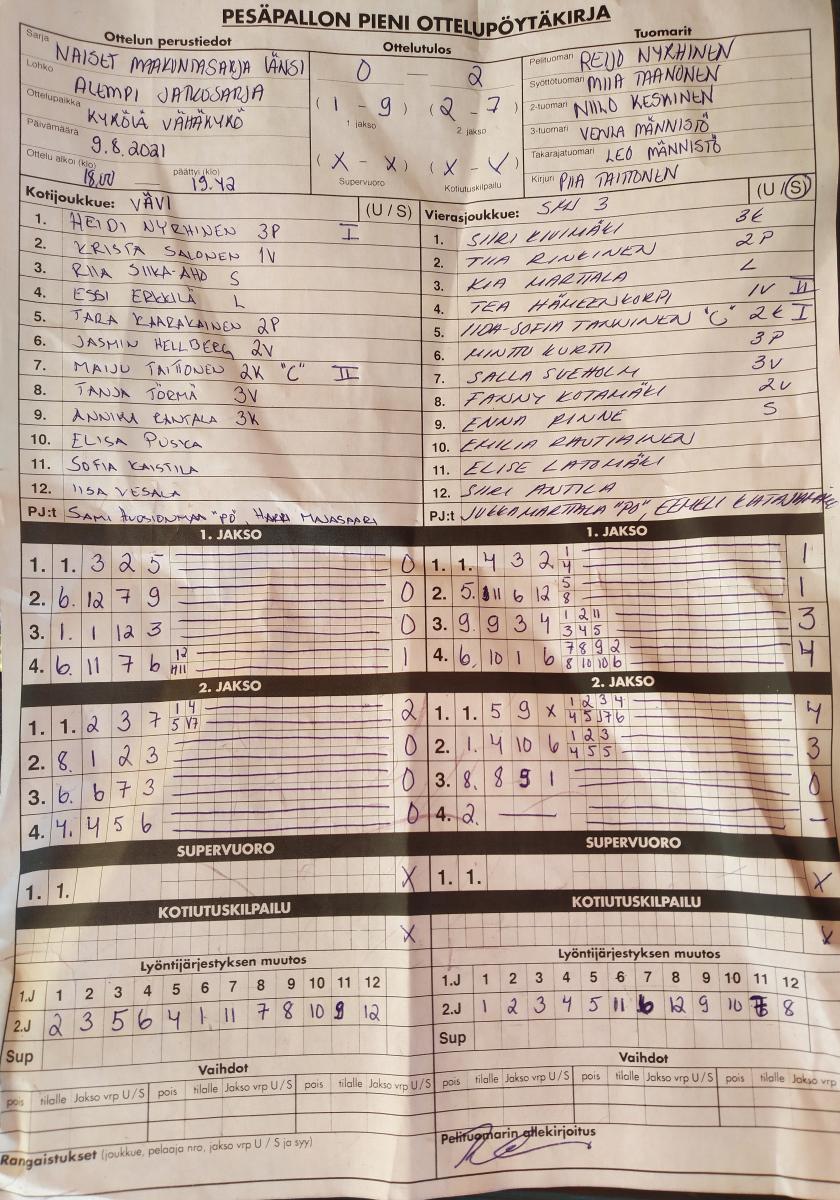 PESÄPALLON PIENI OTTELUPÖYTÄKIRJA
Ottelun perustiedot
Sarja NAISET MAAKUNTASARJA LÄNSI
Lohko ALEMPI JATKOSARJA
Ottelupaikka KYKÖLÄ VÄHÄKYKÖ
Päivämäärä 9.8.2021
Ottelu alkoi (klo) 18.00 — päättyi (klo) 19.42
Ottelutulos
0 — 2
(1 - 9) (2 - 7)
1 jakso 2. jakso
(X - X) (X - X)
Supervuoro Kotiutuskilpailu
Tuomarit
Pelituomari REIJO NYRHINEN
Syöttötuomari MIIA TAANONEN
2-tuomari NIILO KESKINEN
3-tuomari VENLA MÄNNISTÖ
Takarajatuomari LEO MÄNNISTÖ
Kirjuri PIIA TAITTONEN
Kotijoukkue: VÄVI (U / S)
1. HEIDI NYRHINEN 3P I
2. KRISTA SALONEN 1V
3. RIIA SIIKA-AHO S
4. ESSI ERKKILÄ L
5. TARA KAARAKAINEN 2P
6. JASMIN HELLBERG 2V
7. MAIJU TAITTONEN 2K "C" II
8. TANJA TÖRMÄ 3V
9. ANNIKA RANTALA 3K
10. ELISA PUSKA
11. SOFIA KAISTILA
12. IISA VESALA
PJ:t SAMI "PÖ", HARRI MAJASAARI
Vierasjoukkue: SMJ 3 (U / S)
1. SIIRI KIVIMÄKI 3K
2. TIIA RINKINEN 2P
3. KIA MARTTALA L
4. TEA HÄMEENKORPI 1V II
5. IIDA-SOFIA TANNINEN "C" 2K I
6. MINTTU KURTTI 3P
7. SALLA SVEHOLM 3V
8. FANNY KOTAMÄKI 2V
9. ENNA RINNE S
10. EMILIA RAUTIAINEN
11. ELISE LATOMÄKI
12. SIIRI ANTILA
PJ:t JUKKA MARTTALA "PÖ", EEMELI
1. JAKSO
1. 1. 3 2 5 0
2. 6. 12 7 9 0
3. 1. 1 12 3 0
4. 6. 11 7 6 12 11 1
1. JAKSO
1. 1. 4 3 2 1 4 1
2. 5. 11 6 12 5 8 1
3. 9. 9 3 4 1 2 11 3 4 5 3
4. 6. 10 1 6 7 8 9 2 8 10 10 6 4
2. JAKSO
1. 1. 2 3 7 1 4 5 7 2
2. 8. 1 2 3 0
3. 6. 6 7 3 0
4. 4. 4 5 6 0
2. JAKSO
1. 1. 5 9 X 1 2 3 4 4 5 7 6 4
2. 1. 4 10 6 1 2 3 4 5 5 3
3. 8. 8 9 1 0
4. 2. — –
SUPERVUORO
1. 1. X
SUPERVUORO
1. 1. X
KOTIUTUSKILPAILU
X
KOTIUTUSKILPAILU
X
Lyöntijärjestyksen muutos
1.J 1 2 3 4 5 6 7 8 9 10 11 12
2.J 2 3 5 6 4 1 11 7 8 10 9 12
Sup
Lyöntijärjestyksen muutos
1.J 1 2 3 4 5 6 7 8 9 10 11 12
2.J 1 2 3 4 5 11 6 12 9 10 7 8
Sup
Vaihdot
pois tilalle Jakso vrp U / S pois tilalle Jakso vrp U / S pois tilalle Jakso vrp U / S
Vaihdot
pois tilalle Jakso vrp U / S pois tilalle Jakso vrp U / S pois tilalle Jakso vrp
Rangaistukset (joukkue, pelaaja nro, jakso vrp U / S ja syy)
Pelituomarin allekirjoitus